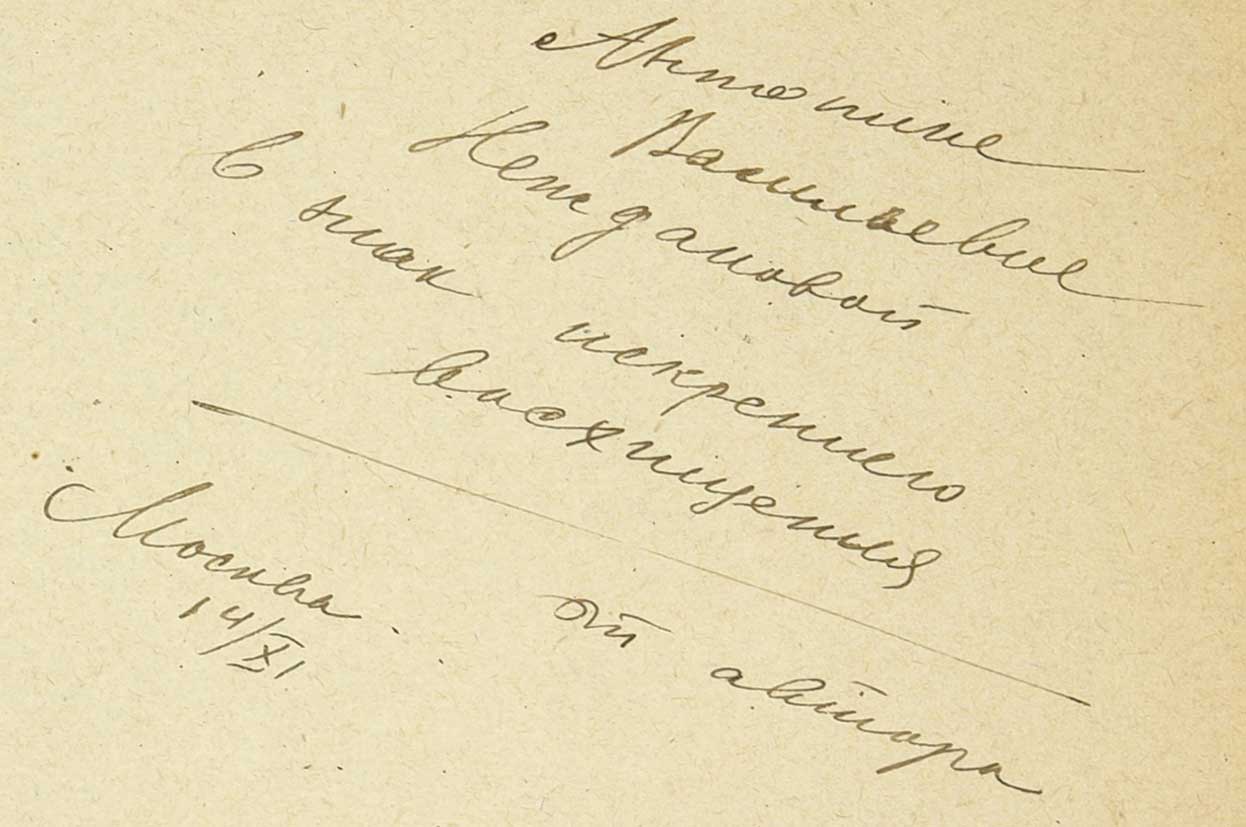 Антонине
Васильевне
Неждановой
в знак искреннего
восхищения
от автора
Москва
14/XI